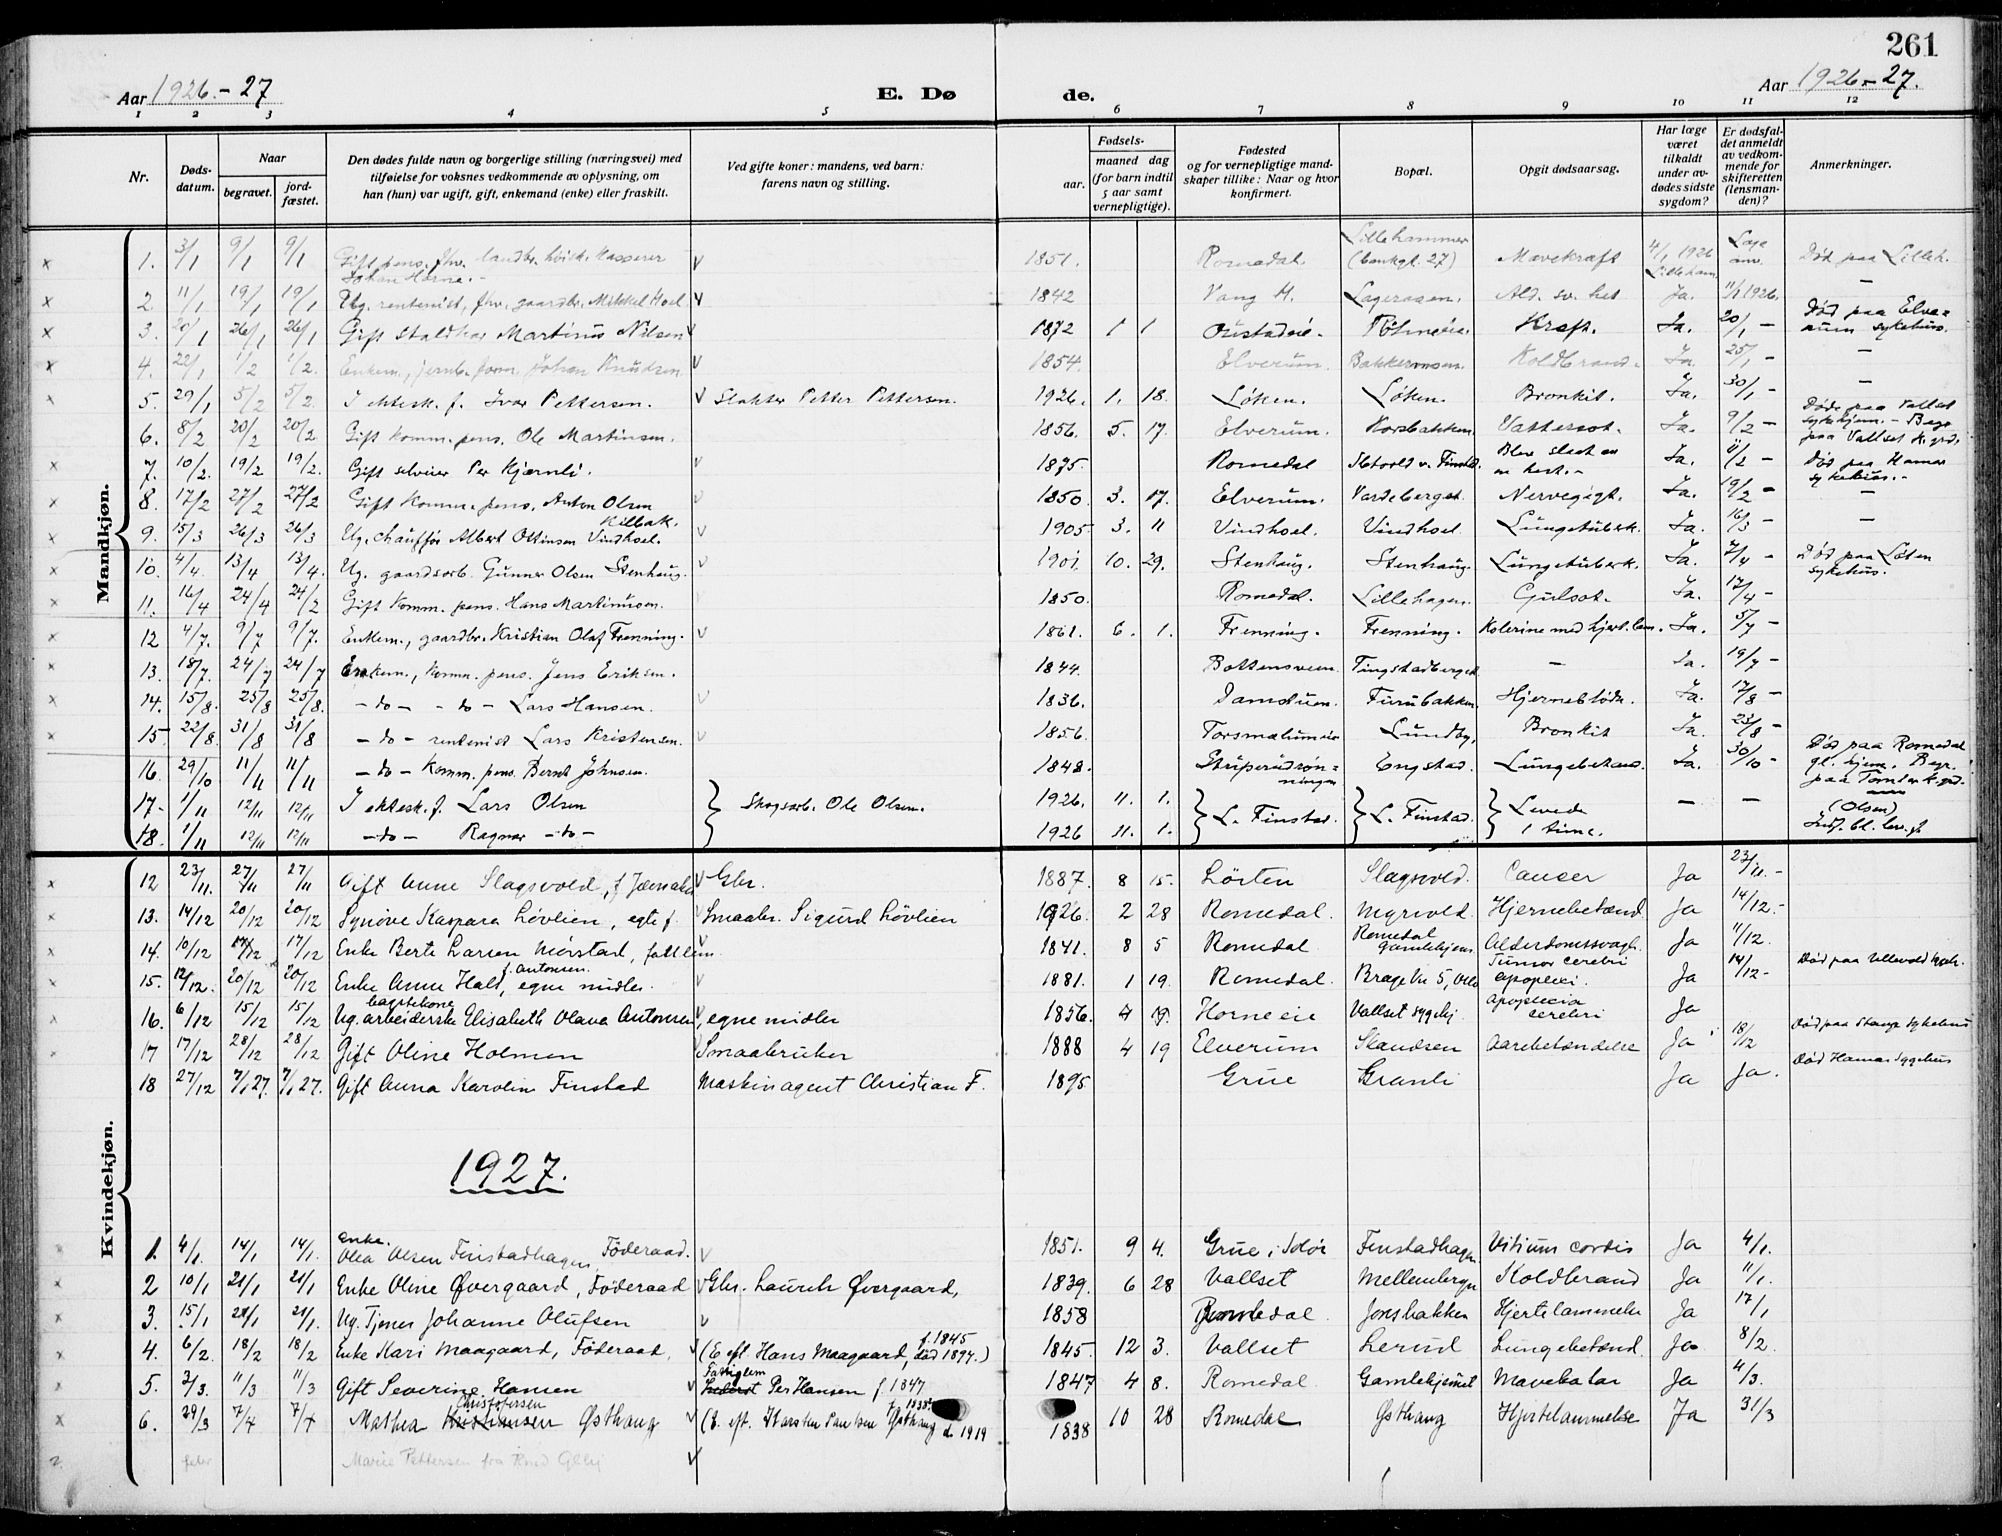 261
Aar 1926.-27
E. Dø
de.
Aar 1926-27.
1 2 3 4 5 6 7 8 9 10 11 12
Nr.
Døds-
datum.
Naar
begravet.
jord-
fæstet.
Den dødes fulde navn og borgerlige stilling (næringsvei) med
tilføielse for voksnes vedkommende av oplysning, om
han (hun) var ugift, gift, enkemand (enke) eller fraskilt.
Ved gifte koner: mandens, ved barn:
farens navn og stilling.
Fødsels-
aar.
maaned dag
(for barn indtil
5 aar samt
vernepligtige).
Fødested
og for vernepligtige mand-
skaper tillike: Naar og hvor
konfirmert.
Bopæl.
Opgit dødsaarsag.
Har læge
været
tilkaldt
under av-
dødes sidste
sygdom?
Er dødsfal-
det anmeldt
av vedkom-
mende for
skifteretten
(lensman-
den)?
Anmerkninger.
Mandkjøn.
1. 3/1 9/1 9/1 Gift pens. fhv. landbr. høisk. kasserer Johan Horne. 1851. Romedal Lillehammer (bankgt. 27) Mavekræft 4/1 1926 Lilleham. Død paa Lilleh.
2. 11/1 19/1 19/1 Ug. rentenist, fhv. gaardbr. Mikkel Hoel 1842 Vang H. Ald. sv. het Ja. 11/1 1926. —
3. 20/1 26/1 26/1 Gift staldkar Martinus Nilsen 1872 1 1 Kræft. Ja. 20/1 — Død paa Elve=rum sykehus.
4. 22/1 1/2 1/2. Enkem., jernb. form. Johan Knudsen 1854. Elverum. Koldbrand. Ja. 25/1 — —
5. 29/1 5/2 5/2. I ektesk. f. Ivar Pettersen. Slakter Petter Pettersen. 1926. 1. 18. Løken. Løken. Bronkit. Ja. 30/1 — —
6. 8/2 20/2 20/2 Gift komm. pens. Ole Martinsen. 1856. 5. 17. Elverum. Korsbakken. Vattersot. Ja. 9/2 — Døde paa Vallset sykehjem. — Begr. paa Vallset k. grd.
7. 10/2. 19/2 19/2. Gift selveier Per Kjærnli. 1875. Romedal Blev slaat av en hest. — Ja. 11/2 — Død paa Hamar sykehus. —
8. 17/2 27/2 27/2 Gift komm. pens. Anton Olsen 1850 3. 17. Elverum. Vardeberget. Nervegigt. Ja. 19/2 — —
9. 15/3 26/3 26/3 Ug. chauffør Albert Ottinsen Vindhoel. Kilbak. 1905 3. 11 Vindhoel. Vindhoel Lungetuberk. Ja. 16/3 — —
10. 4/4 13/4 13/4. Ug. gaardsarb. Gunner Olsen Stenhaug. 1901. 10. 29. Stenhaug. Stenhaug. Lungetuberk. Ja. 7/4 — Død paa Løten sykehus.
11. 16/4 24/4 24/2 Gift komm. pens. Hans Martinusen. 1850. Romedal. Lillehagen. Gulsot. Ja. 17/4 —
12 4/7. 9/7 9/7. Enkem., gaardbr. Kristian Olaf Frenning. 1861. 6. 1. Frenning. Frenning. Kolerine med hjert. lam. Ja. 5/7 —
13. 18/7. 24/7 24/7 Enkem., komm. pens. Jens Eriksen. 1844. Bottensveen. Tingstadberget — Ja. 19/7 —
14. 15/8. 25/8 25/8. — do — — do — Lars Hansen. 1836. Furubakken. Hjerneblødn. Ja. 17/8 —
15. 22/8. 31/8 31/8 — do — rentenist Lars Kristensen. 1856. Lundby, Bronkit Ja. 23/8 —
16 29/10 11/11 11/11 — do — Komm. pens. Bernt Johnsen. 1848. Engstad. Lungebetænd. Ja. 30/10 — Død paa Romedal gl. hjem. Begr. paa Tomter k. grd.
17. 1/11 12/11 12/11 I ektesk. f. Lars Olsen } Skogsarb. Ole Olsen. 1926. 11. 1. } L. Finstad. } L. Finstad. } Levede — —
18. 1/11 12/11 12/11 — do — Ragnar — do — 1926 11. 1. 1 time. (Olsen)
Kvindekjøn.
12 23/11. 27/11 27/11 Gift Anne Slagsvold, Gbr. 1887. 8 15. Løiten Slagsvold. Cancer Ja 23/11. —
13. 14/12 20/12 20/12 Synøve Kaspara Løvlien, egte f. Smaabr. Sigurd Løvlien 1926. 2 28 Romedal. Myrvold. Hjernebetænd. Ja 14/12. —
14. 10/12 17/12 17/12 Enke Berte Larsen Mørstad, fattlem. 1841. 8 5 Romedal. Romedal gamlehjem Alderdomssvagh. Ja 11/12.
15. 12/12. 20/12 20/12 Enke Anne Hald, f. Antonsen. egne midler. 1881. 1 19. Romedal. Tumor cerebri apoplexi. Ja 14/12 — Død paa Ullevold
16. 6/12 15/12 15/12 Ug. arbeiderske Elisabeth Olava Antonsen, egne midler 1856. 4 19. Horneeie Vallset sygehj. apoplexia cerebri Ja
17 17/12 28/12 28/12 Gift Oline Holmen Smaabruker 1888 4 19 Elverum Aarebetændelse Ja 18/12 Død paa Stange Sykehus
18 27/12 7/1 27. 7/1 27. Gift Anna Karolin Finstad Maskinagent Christian F. 1895 Grue Granli Ja Ja. Død Hamar Sygehus
1927.
1. 4/1. 14/1 14/1. enke. Olea Olsen Finstadhagen, Føderaad. 1851. 9 4. Grue i Solør Finstadhagen Vitium cordis Ja 4/1.
2 10/1 21/1 21/1 Enke Oline Øvergaard, Føderaad Gbr. Laurits Øvergaard, 1839. 6 28 Vallset Koldbrand Ja 11/1.
3. 15/1 21/1 21/1. Ug. Tjener Johanne Olufsen 1858 Romedal Jonsbakken Hjertelammelse Ja 17/1
4. 6/2. 18/2 18/2 Enke Kari Maagaard, Føderaad. (E. eft. Hans Maagaard, f. 1845 død 1894.) 1845. 12 3. Vallset Lerud Lungebetænd. Ja 8/2.
5. 2/3. 11/3 11/3 Gift Severine Hansen Fattiglem Per Hansen f. 1847 1847 4 8. Romedal Gamlehjemmet Mavekatar Ja 4/3.
6. 29/3 7/4 7/4 Mathea Christofersen Østhaug (E. eft. Karsten Paulsen Østhaug f. 1835. d. 1919 1838 10 28 Romedal Østhaug Hjertelammelse Ja 31/3
Marie Pettersen fra